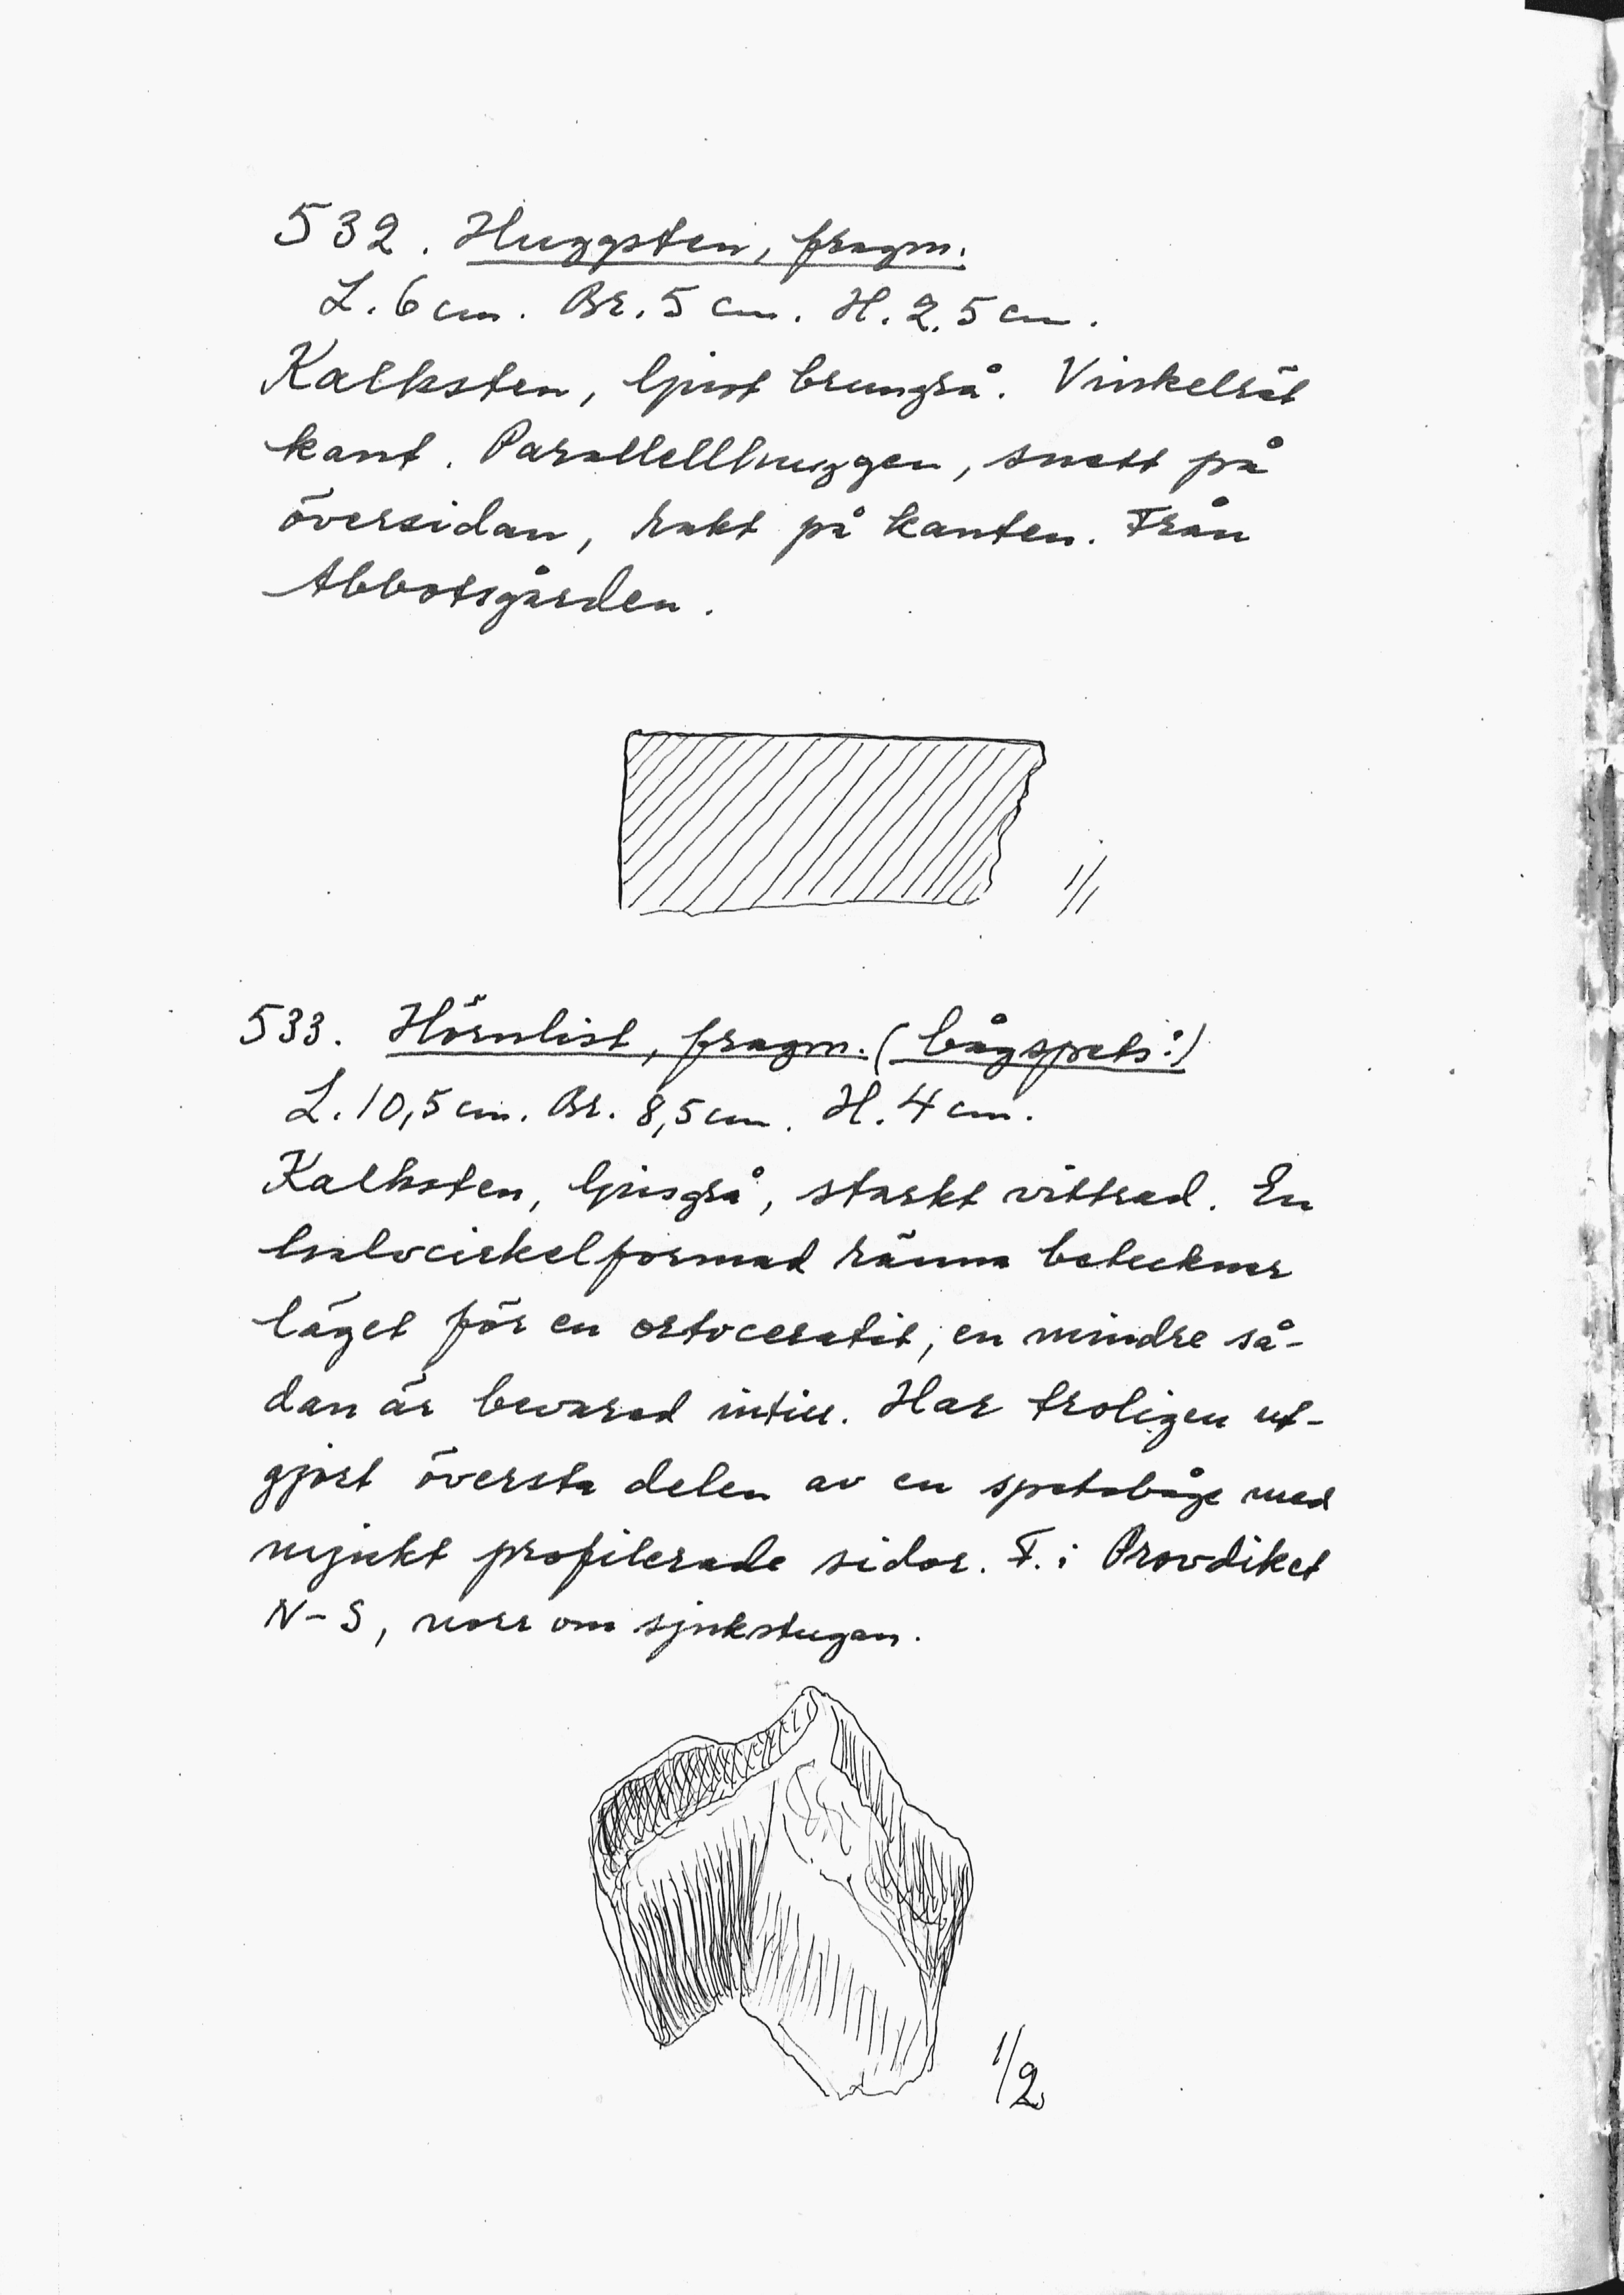 532. Huggsten, fragm.
L. 6 cm. Br. 5 cm. H. 2.5 cm.
Kalksten, ljust brungrå. Vinkelrät
kant. Parallellhuggen, snett på
översidan, rakt på kanten. Från
Abbotsgården.
1/1
533. Hörnlist, fragm. (bågspets?)
L. 10,5 cm. Br. 8,5 cm. H. 4 cm.
Kalksten, ljusgrå, starkt vittrad. En
halvcirkelformad ränna betecknar
läget för en ortoceratit, en mindre så-
dan är bevarad intill. Har troligen ut-
gjort översta delen av en spetsbåge med
mjukt profilerade sidor. F. i Provdiket
N-S, norr om sjukstugan.
1/2